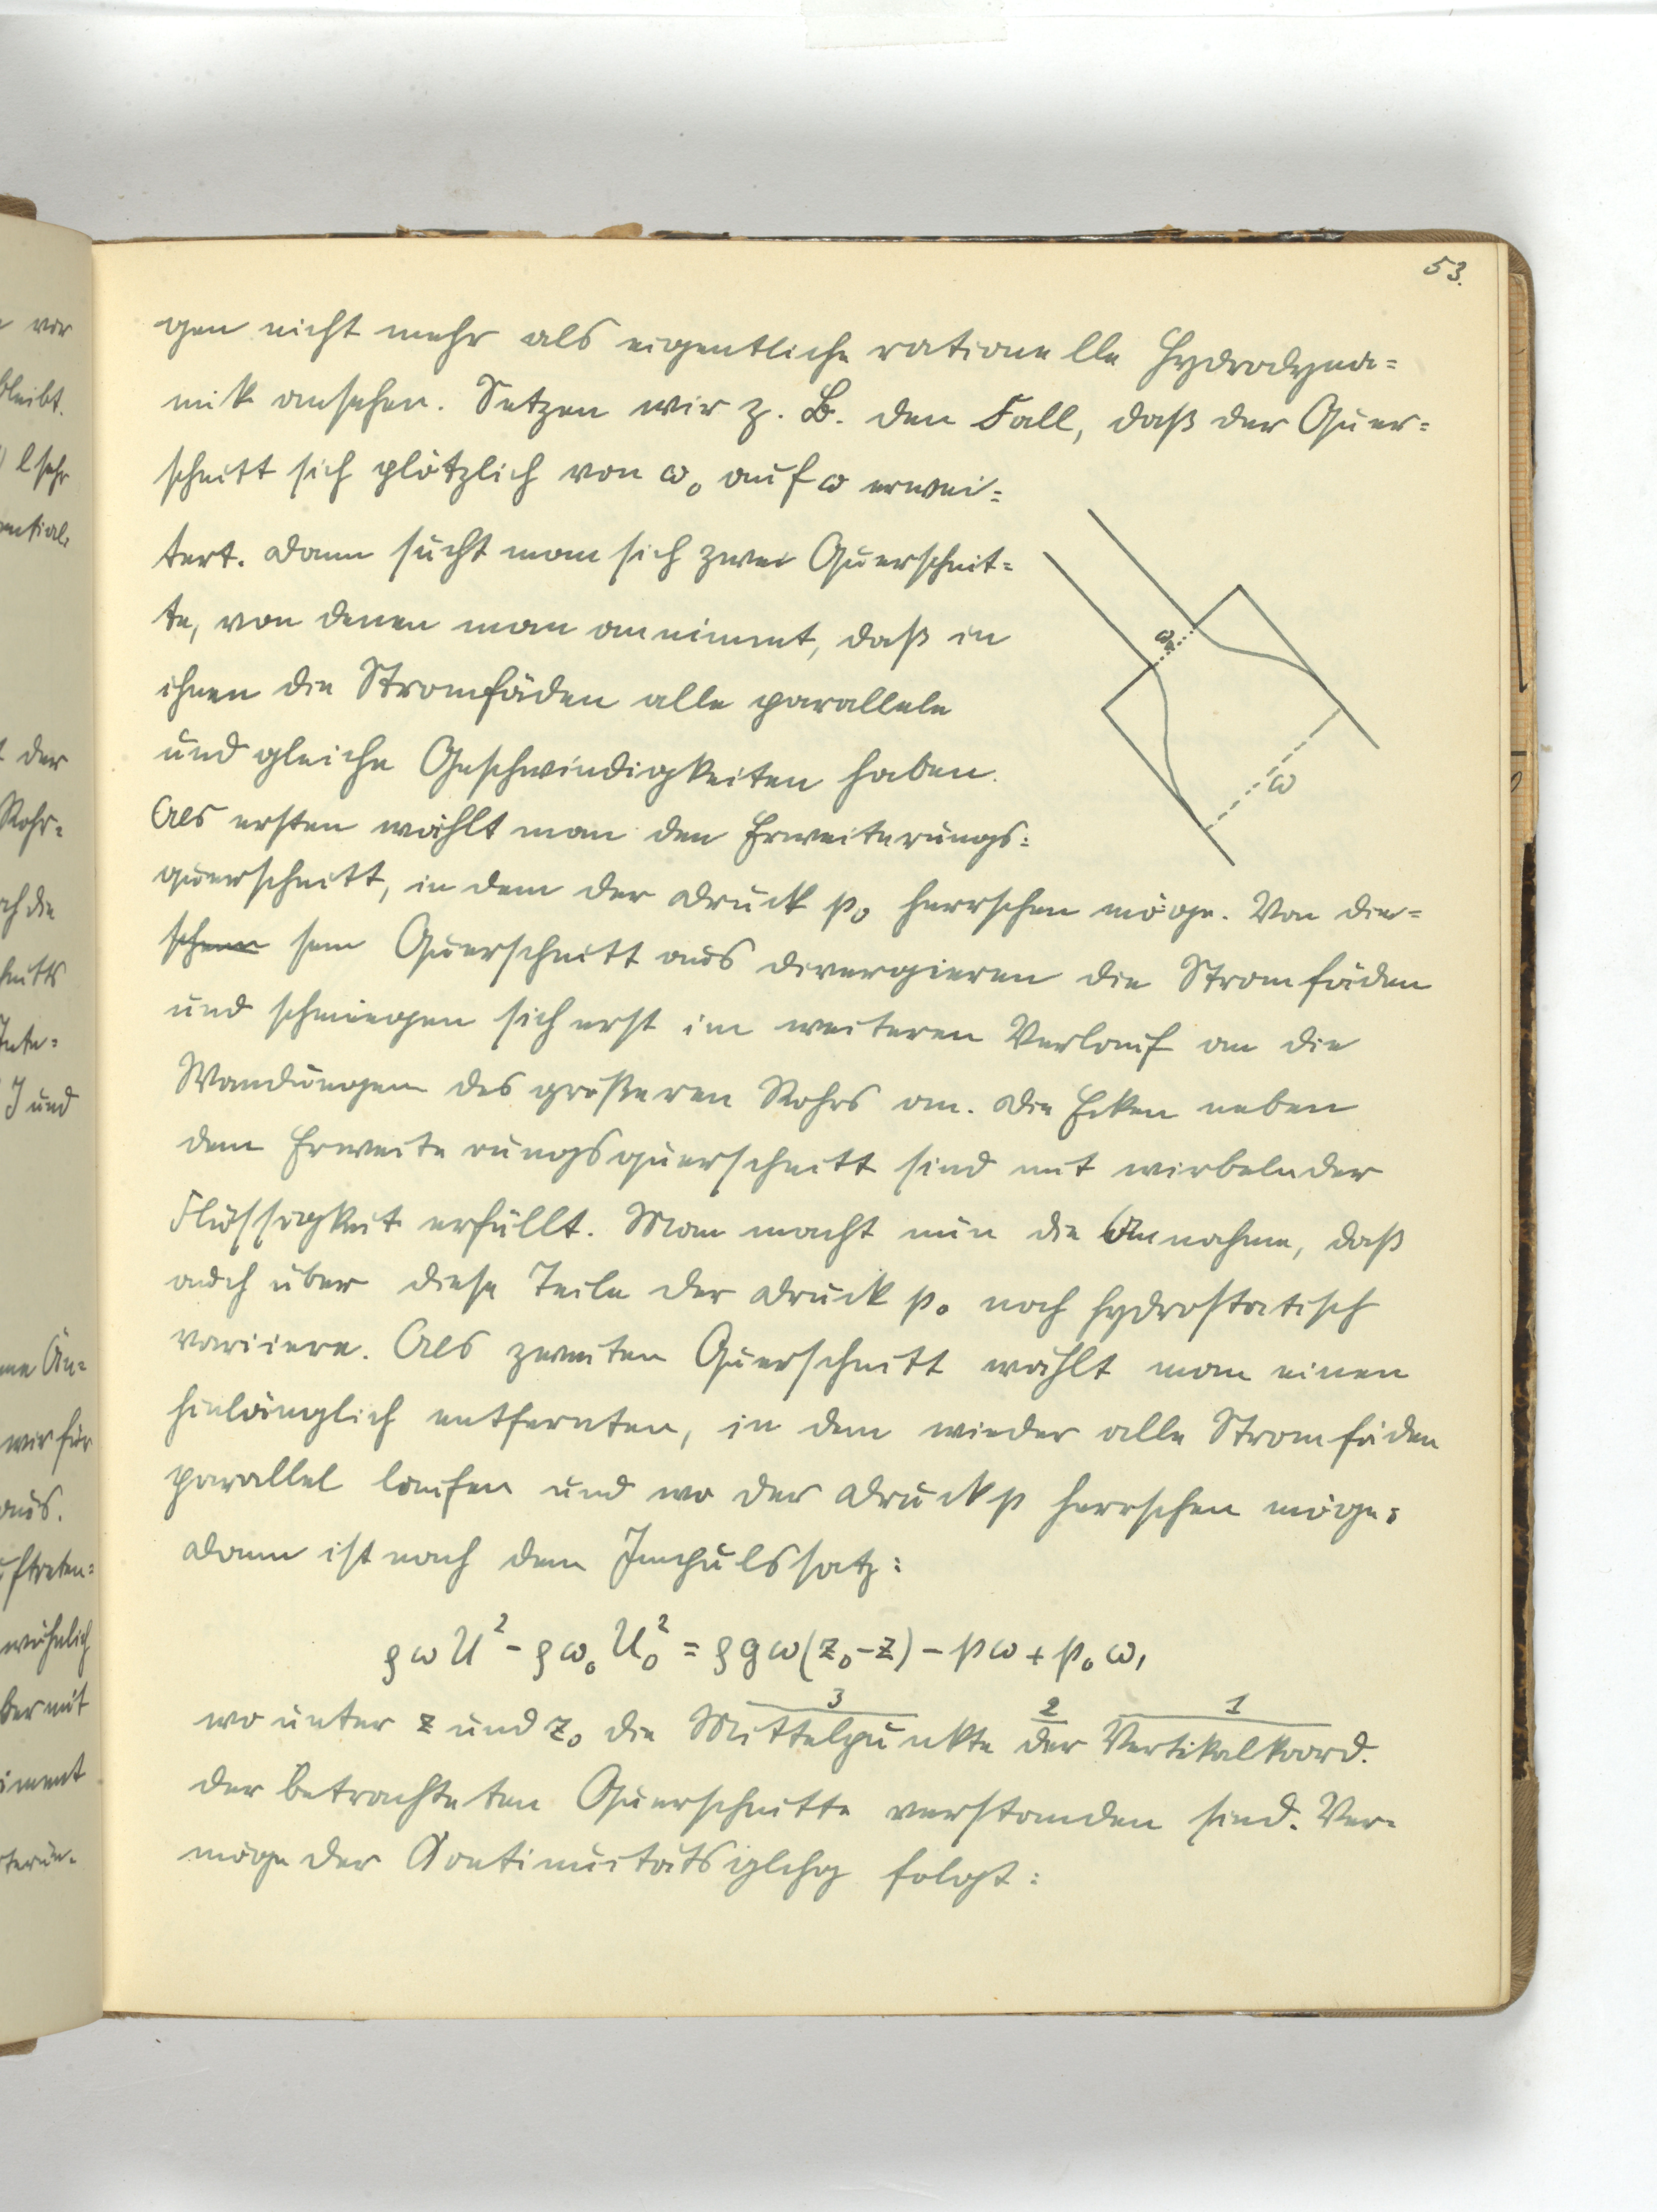 53.
gen nicht mehr als eigentliche rationelle Hydrodyna=
mik ansehen. Setzen wir z. B. den Fall, daß der Quer=
schnitt sich plötzlich von ω₀ auf ω erwei=
tert. Dann sucht man sich zwei Querschnit=
te, von denen man annimmt, daß in
ihnen die Stromfäden alle parallele
und gleiche Geschwindigkeiten haben.
Als ersten wählt man den Erweiterungs=
querschnitt, in dem der Druck p₀ herrschen möge. Von die=
sem Querschnitt aus divergieren die Stromfäden
und schmiegen sich erst im weiteren Verlauf an die
Wandungen des größeren Rohrs an. Die Ecken neben
dem Erweiterungsquerschnitt sind mit wirbelnder
Flüssigkeit erfüllt. Man macht nun die Annahme, daß
auch über diese Teile der Druck p₀ noch hydrostatisch
variiere. Als zweiten Querschnitt wählt man einen
hinlänglich entfernten, in dem wieder alle Stromfäden
parallel laufen und wo der Druck p herrschen möge:
Dann ist nach dem Impulssatz:
ρωU² - ρω₀U₀² = ρgω(z₀-z) - pω + p₀ω,
3 2 1
wo unter z und z₀ die Mittelpunkte der Vertikalkoord.
der betrachteten Querschnitte verstanden sind. Ver=
möge der Continuitätsglchg folgt:
ω₀
ω